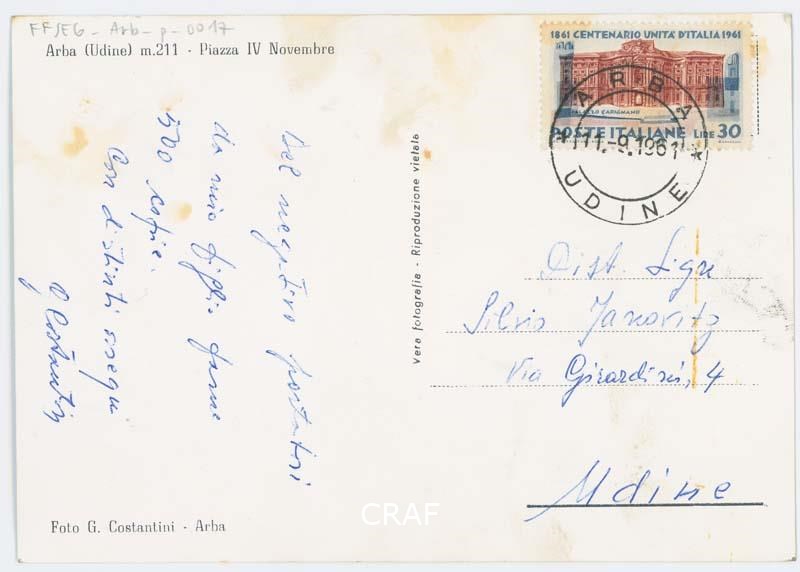 FFSEG - Arb - p - 0017
Arba (Udine) m.211 - Piazza IV Novembre
1861 CENTENARIO UNITÀ D'ITALIA 1961
PALAZZO CARIGNANO
POSTE ITALIANE LIRE 30
ARBA
* 11.-9.1961 *
UDINE
Del negativo portatori
da mio figlio farne
500 copie.
Con distinti ossequi
G Costantin
Vera fotografia - Riproduzione vietata
Dist. Sigr
Silvio Janovitz
Via Girardini, 4
Udine
Foto G. Costantini - Arba
CRAF